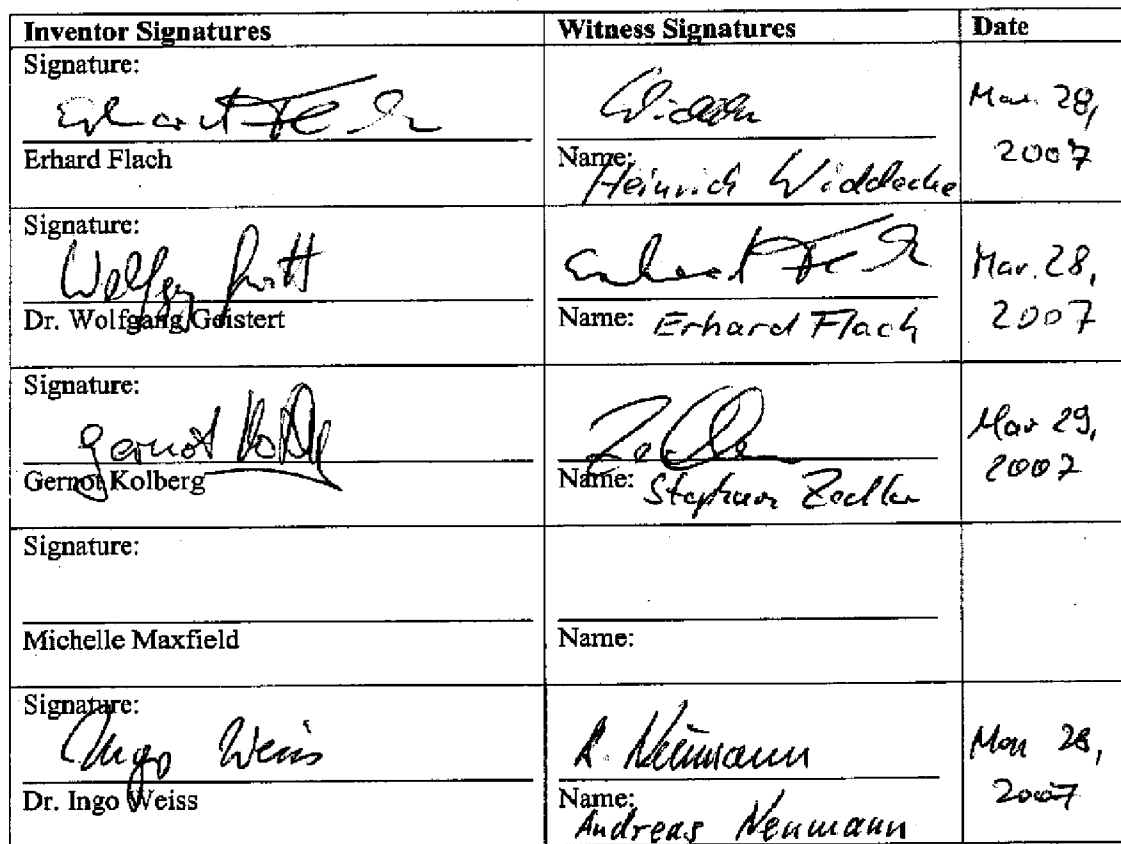 Inventor Signatures Witness Signatures Date
Signature:
Erhard Flach
Name: Heinrich Widdecke
Mar. 28,
2007
Signature:
Wolfgang
Dr. Wolfgang Geistert
Erhard Flach
Name: Erhard Flach
Mar. 28,
2007
Signature:
Gernot Kolberg
Name: Stephan
Mar 29,
2007
Signature:
Michelle Maxfield
Name:
Signature:
Ingo Weiss
Dr. Ingo Weiss
Neumann
Name: Andreas Neumann
28,
2007